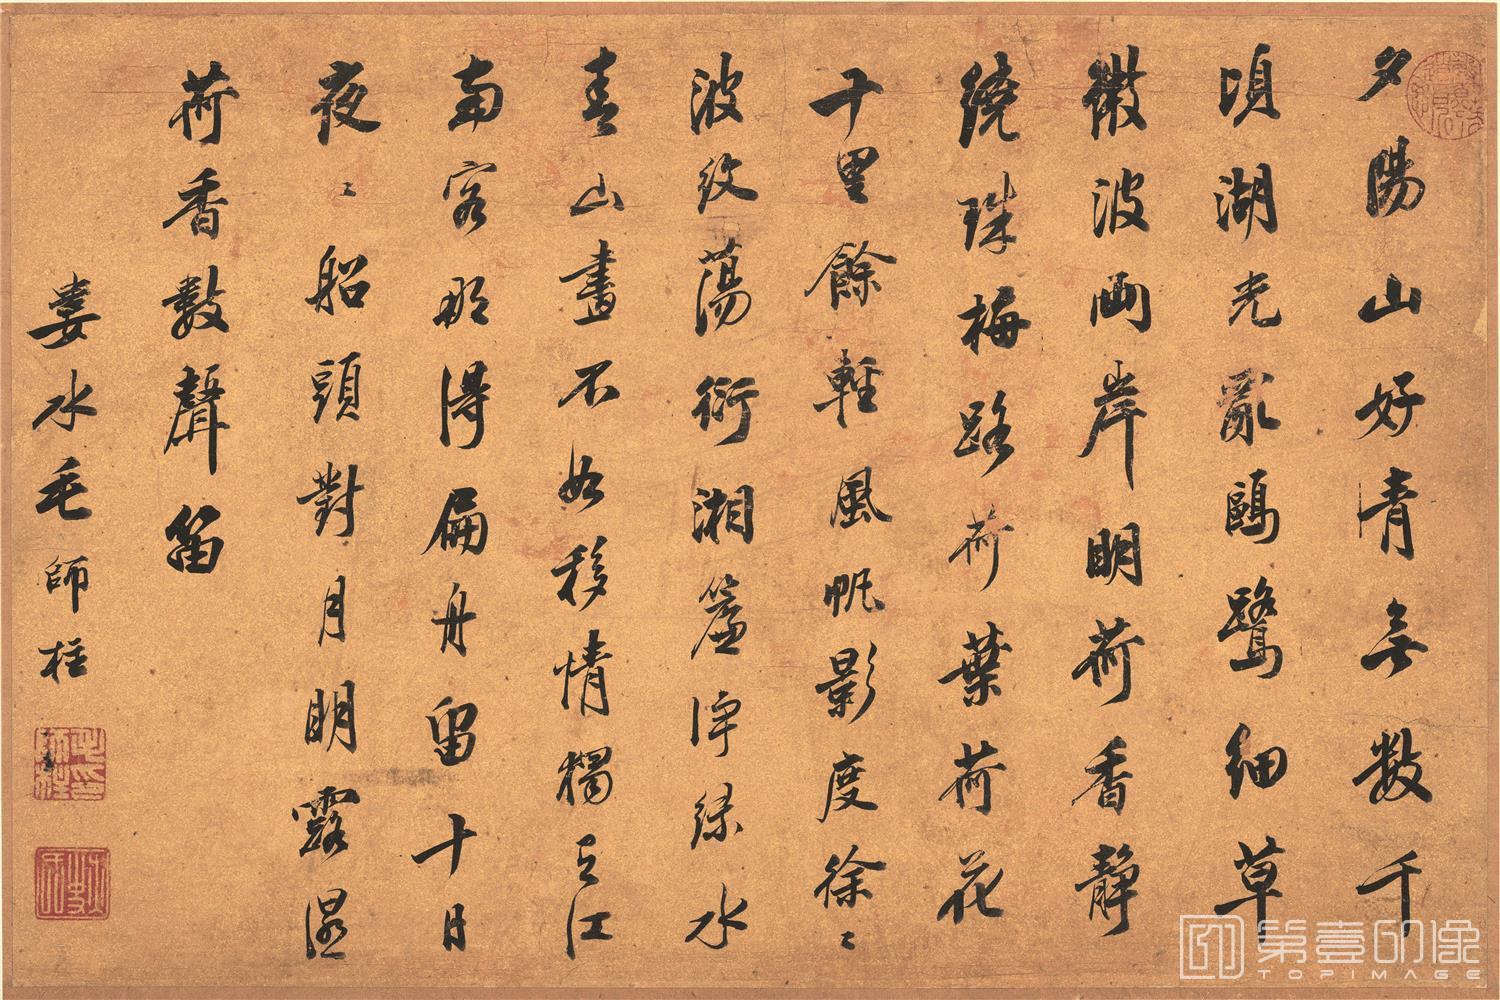 夕陽山好青無數千
頃湖光亂鷗鷺細草
微波兩岸明荷香靜
繞珠梅路荷葉荷花
十里餘輕風帆影度徐〻
波紋蕩衍湘簾淨綠水
春山畫不如移情獨立江
南客那得扁舟留十日
夜〻船頭對月明露濕
荷香數聲笛
婁水毛師柱
第壹印像
TOPIMAGE